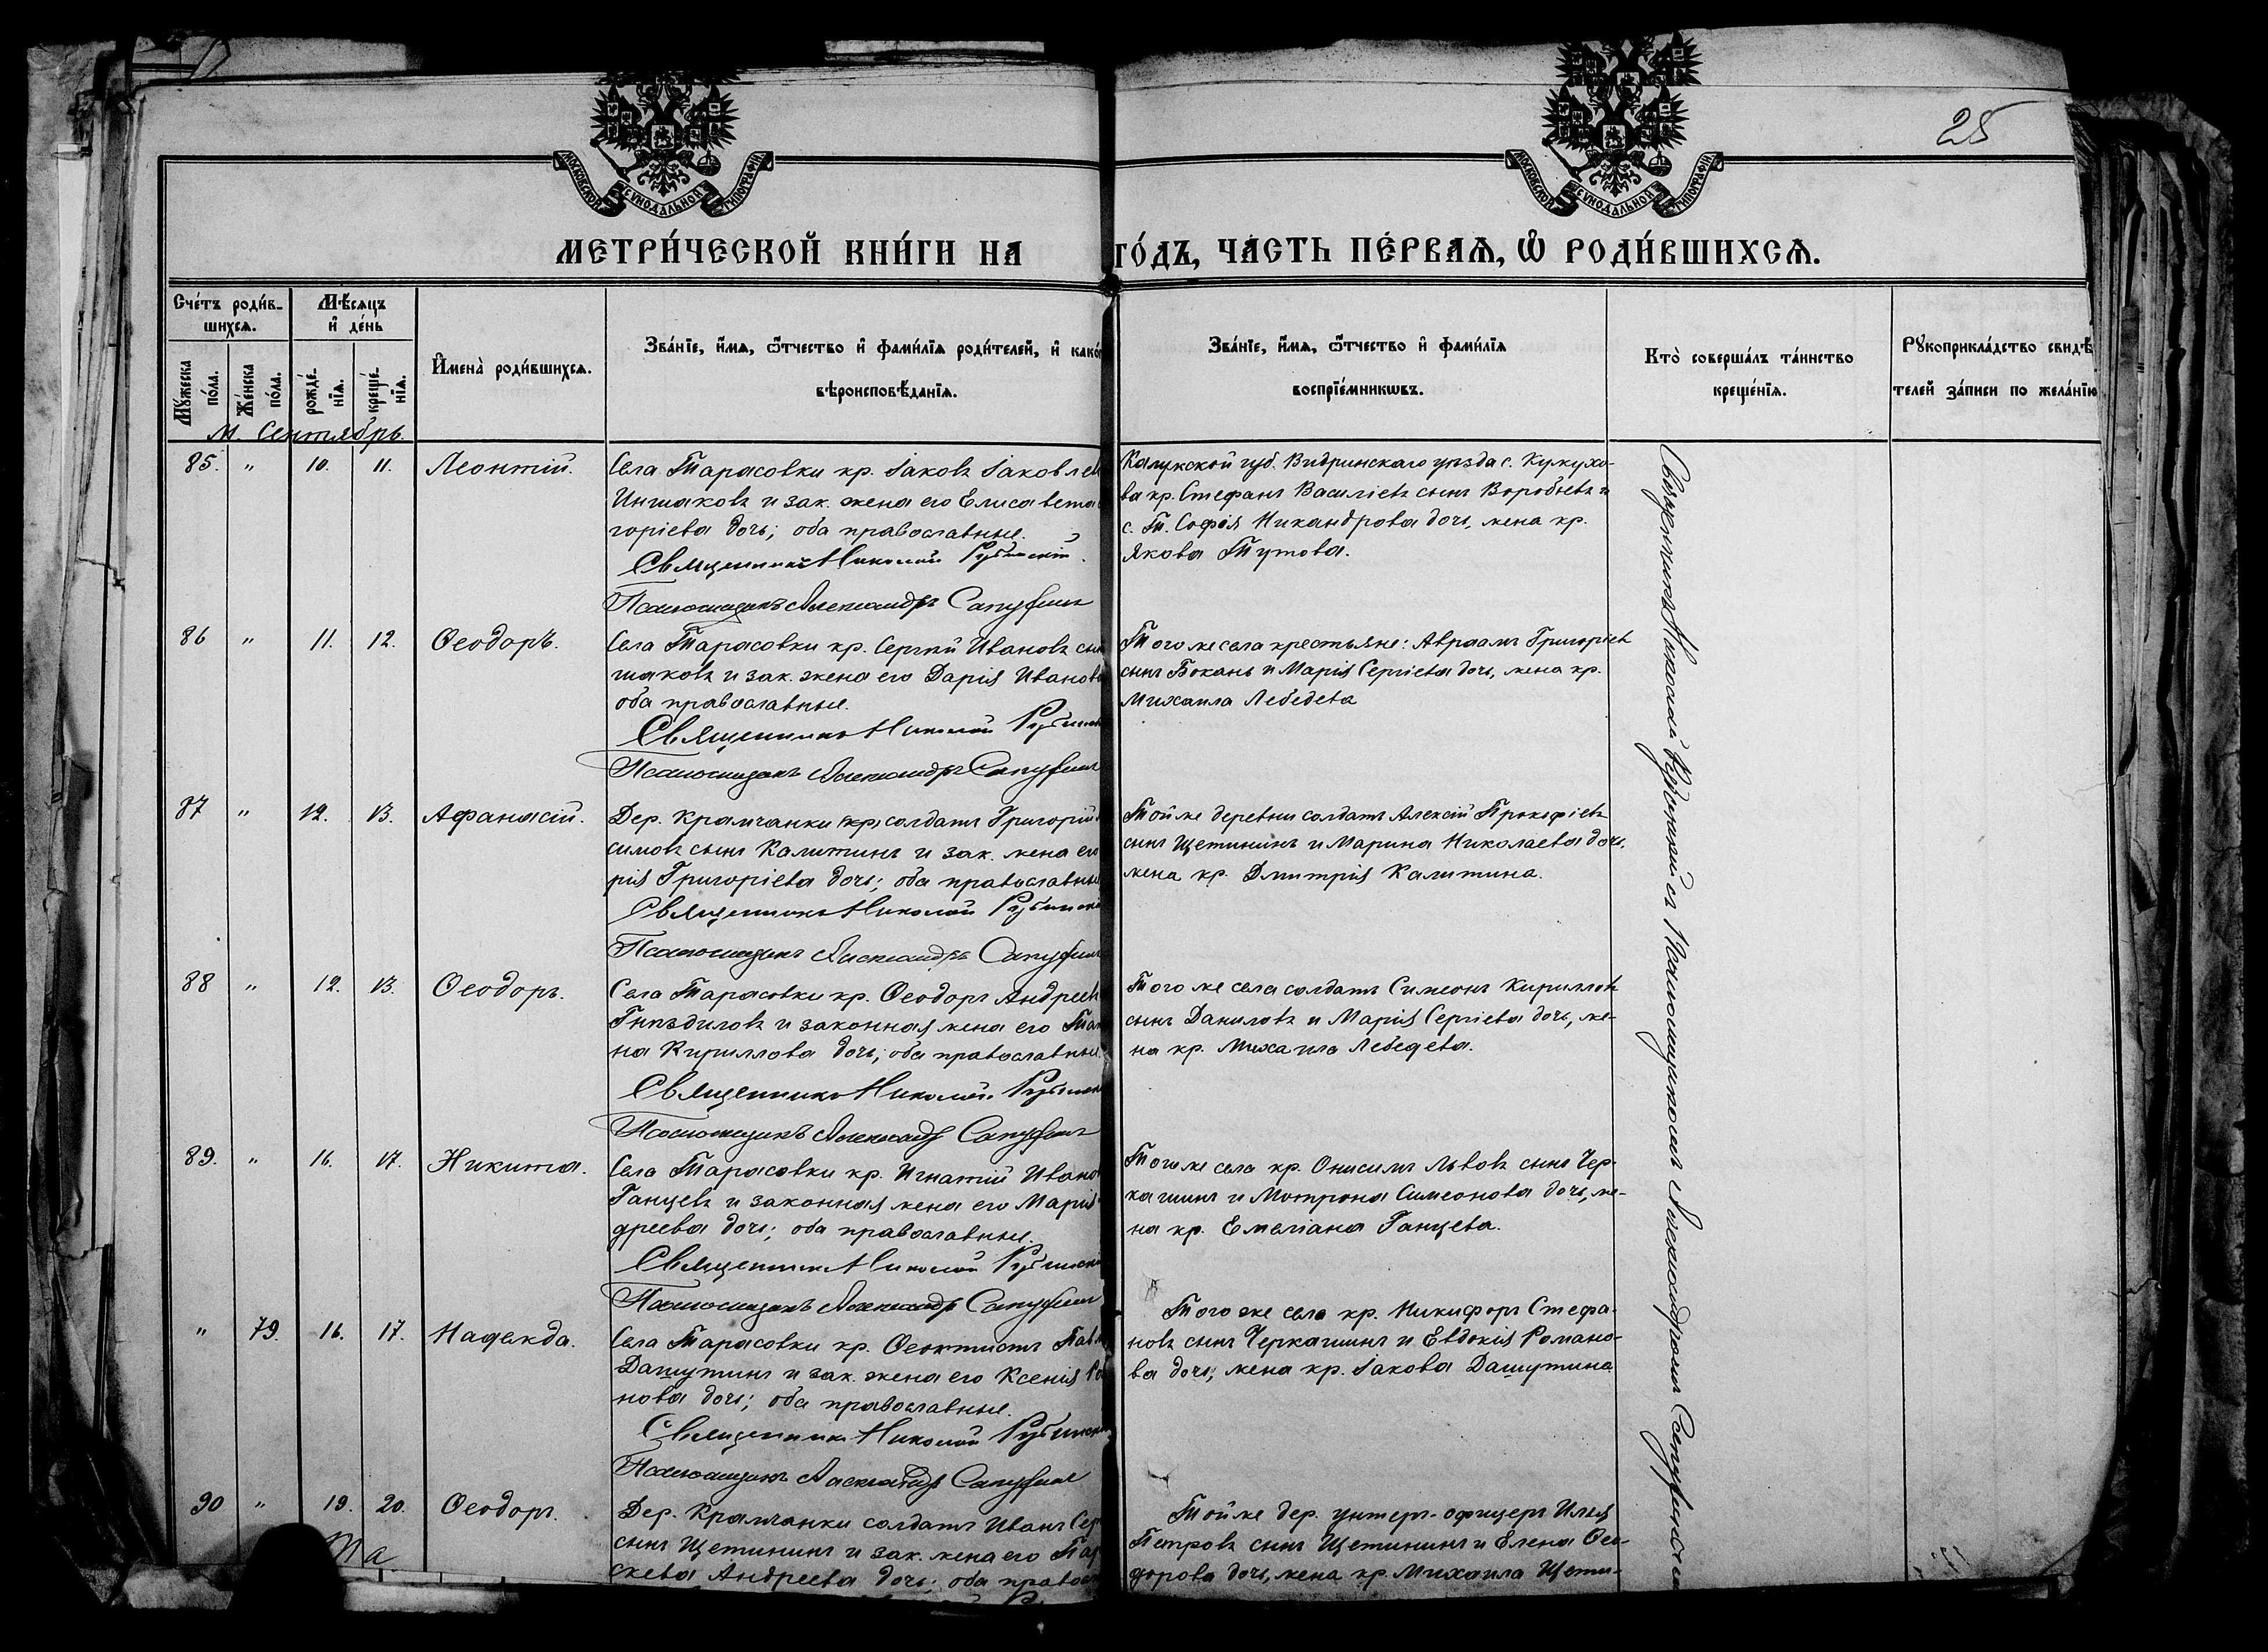 25
МОСКОВСКОЙ СѴНОДАЛЬНОЙ ТИПОГРАФІИ
МОСКОВСКОЙ СѴНОДАЛЬНОЙ ТИПОГРАФІИ
МЕТРИ́ЧЕСКОЙ КНИ́ГИ НА ГО́ДЪ, ЧА́СТЬ ПЕ́РВАѦ, Ѡ РОДИ́ВШИХСѦ.
Сче́тъ роди́в-
шихсѧ.
Мꙋжеска по́ла.
Же́нска по́ла.
Мѣ́сяцъ
и де́нь
рожде́-
нїѧ.
креще́-
нїѧ.
И҆мена̀ роди́вшихсѧ.
Зва́нїе, и҆́мѧ, ѻ҆́тчество и҆ фами́лїѧ роди́телей, и҆ како́
вѣроисповѣ́данїѧ.
Зва́нїе, и҆́мѧ, ѻ҆́тчество и҆ фами́лїѧ
воспрїе́мникѡвъ.
Кто̀ соверша́лъ та́инство
креще́нїѧ.
Рꙋкоприкла́дство свидѣ́
телей за́писи по жела́нїю
М. Сентябрь.
85. " 10. 11. Леонтій.
Села Тарасовки кр. Іаковъ Іаковле
Иншаковъ и зак. жена его Елисавета
горіева дочь; оба православные.
Священникъ Николай Рубинскій.
Псаломщикъ Александръ
Калужской губ. уѣзда с.
ва кр. Стефанъ Василіевъ сынъ Воробьевъ и
с. Т. Софія Никандрова дочь, жена кр.
Якова Тутова.
86 " 11. 12. Ѳеодоръ.
Села Тарасовки кр. Сергѣй Ивановъ сын
шаковъ и зак. жена его Дарія Иванов
оба православные.
Священникъ Николай
Псаломщикъ Александръ
Того же села крестьяне: Авраамъ Григоріевъ
сынъ Бокань и Марія Сергіева дочь, жена кр.
Михаила Лебедева
87 " 12. 13. Афанасій.
Дер. Крамчанки солдатъ Григорій
симовъ сынъ Калитинъ и зак. жена его
рія Григоріева дочь; оба православные
Священникъ Николай
Псаломщикъ Александръ
Той же деревни солдатъ Алексій Прокофіевъ
сынъ Щетининъ и Марина Николаева дочь,
жена кр. Дмитрія Калитина.
88 " 12. 13. Ѳеодоръ.
Села Тарасовки кр. Ѳеодоръ Андреев
Гнѣздиловъ и законная жена его
на Кириллова дочь; оба православные
Священникъ Николай
Псаломщикъ Александръ
Того же села солдатъ Симеонъ Кирилловъ
сынъ Даниловъ и Марія Сергіева дочь, же-
на кр. Михаила Лебедева.
89. " 16. 17. Никита.
Села Тарасовки кр. Игнатій Ивано
Ганцевъ и законная жена его Марія
дреева дочь; оба православные.
Священникъ Николай
Псаломщикъ Александръ
Того же села кр. Онисимъ Львовъ сынъ Чер-
кашинъ и Мотрона Симеонова дочь, же-
на кр. Емеліана Ганцева.
" 79. 16. 17. Надежда.
Села Тарасовки кр. Ѳеоктистъ Павл
Дашутинъ и зак. жена его Ксенія Ро
нова дочь; оба православные.
Священникъ Николай
Псаломщикъ Александръ
Того же села кр. Никифоръ Стефа-
новъ сынъ Черкашинъ и Евдокія Романо-
ва дочь, жена кр. Іакова Дашутина
90 " 19. 20. Ѳеодоръ.
Дер. Крамчанки солдатъ Иванъ Сер
сынъ Щетининъ и зак. жена его Пар
скева Андреева дочь; оба правосл
Той же дер. унтеръ-офицеръ Илья
Петровъ сынъ Щетининъ и Елена Ѳео-
дорова дочь, жена кр. Михаила Щети-
Священникъ Николай Рубинскій съ Псаломщикомъ Александромъ